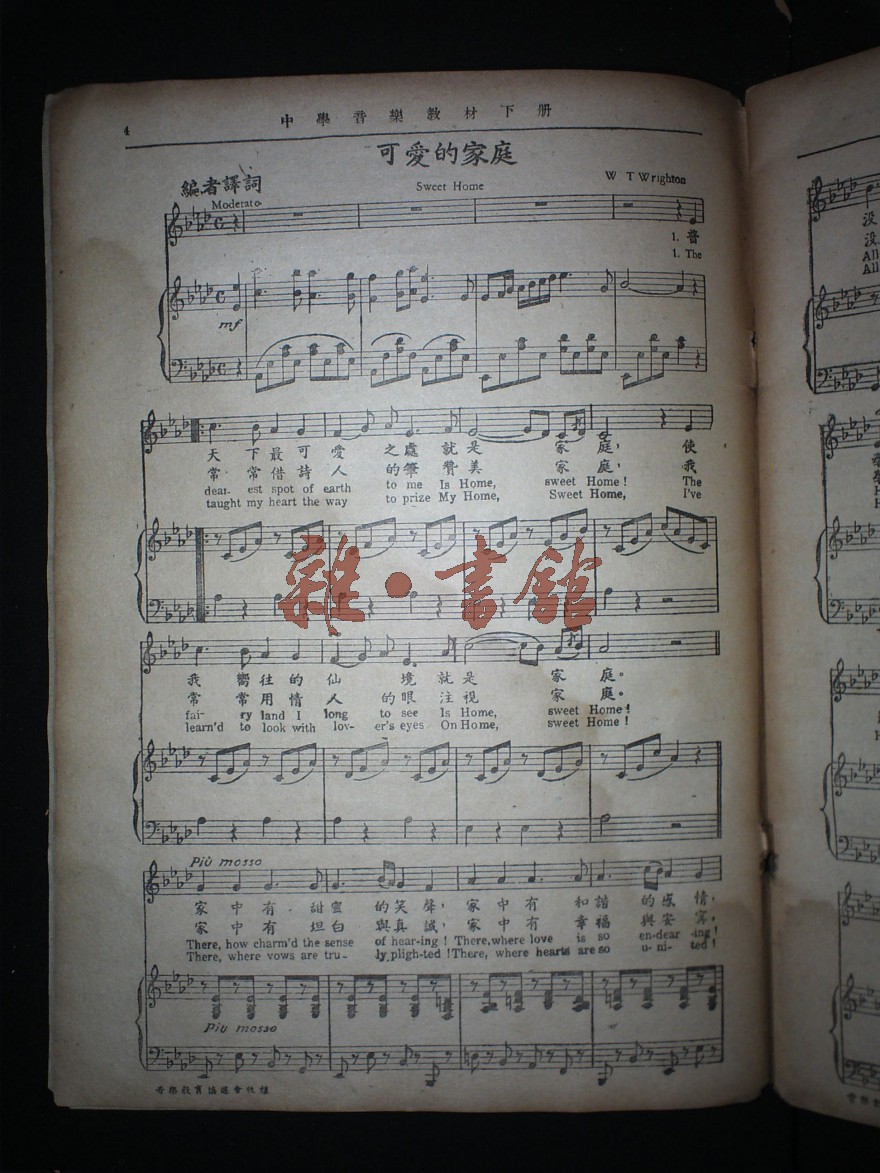 4
中學音樂教材下册
可愛的家庭
編者譯詞
Sweet Home
W T Wrighton
Moderato
1. 普
1. The
mf
天下最可愛之處就是家庭，使
常常借詩人的筆贊美家庭，我
dear- est spot of earth to me Is Home, sweet Home! The
taught my heart the way to prize My Home, Sweet Home, I've
雜·書館
我嚮往的仙境就是家庭。
常常用情人的眼注視家庭。
fai- ry land I long to see Is Home, sweet Home!
learn'd to look with lov- er's eyes On Home, sweet Home!
Più mosso
家中有甜蜜的笑聲，家中有和諧的感情，
家中有坦白與真誠，家中有幸福與安寧。
There, how charm'd the sense of hear-ing! There, where love is so en-dear-ing!
There, where vows are tru- ly pligh-ted! There, where hearts are so u-ni-ted!
Più mosso
没
没
All
All